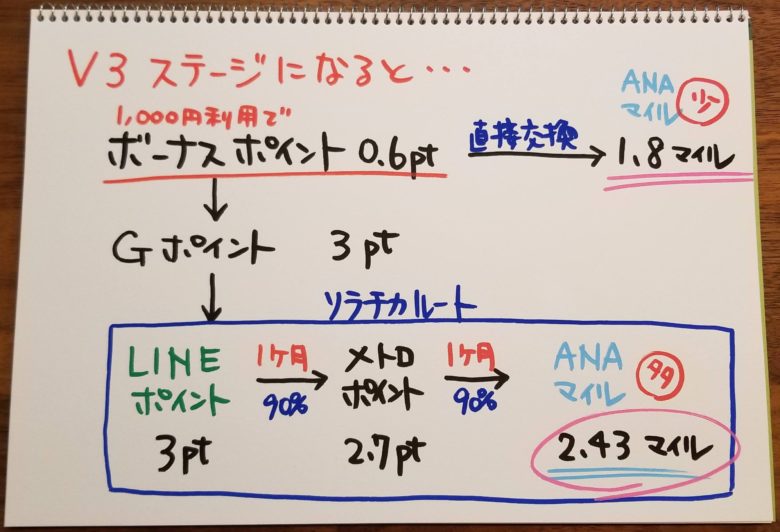 V3 ステージになると・・・
1,000円利用で
ボーナスポイント 0.6pt
直接交換
ANA
マイル 少
1.8マイル
Gポイント 3pt
ソラチカルート
LINE
ポイント
3pt
1ヶ月
90%
メトロ
ポイント
2.7pt
1ヶ月
90%
ANA
マイル 多
2.43マイル